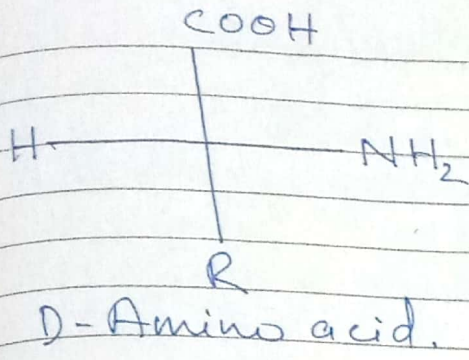 COOH
H NH2
R
D-Amino acid.